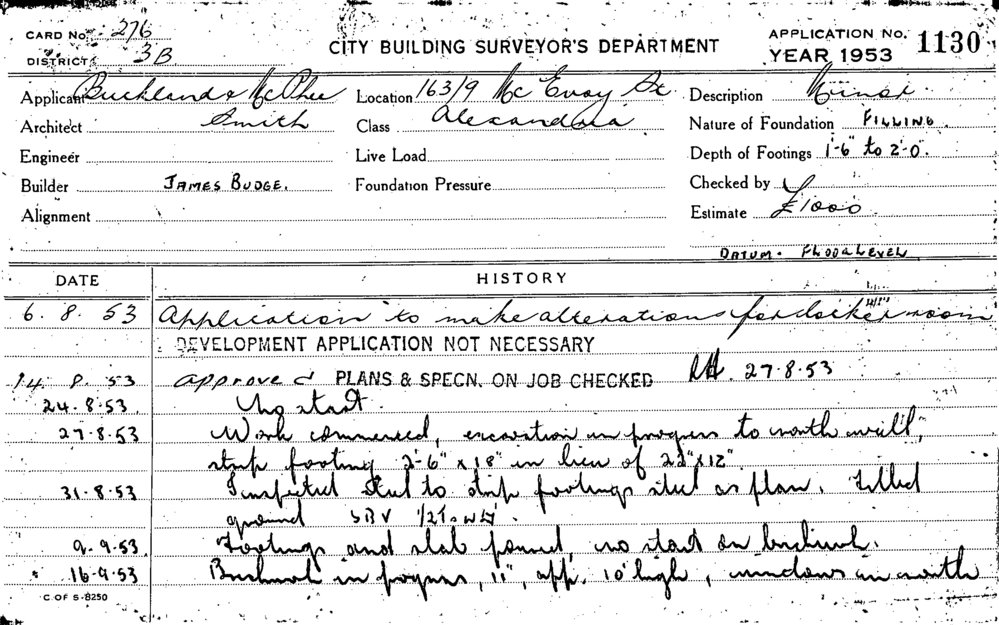 CARD No. 276
DISTRICT 3B
CITY BUILDING SURVEYOR'S DEPARTMENT
APPLICATION No. 1130
YEAR 1953
Applicant Buckland & McPhee Smith
Location 163/9 McEvoy St Alexandria
Description Minor
Architect
Class
Nature of Foundation FILLING.
Engineer
Live Load
Depth of Footings 1'-6" to 2'-0".
Builder JAMES BUDGE.
Foundation Pressure
Checked by
Alignment
Estimate £1000
DATUM. FLOOR LEVEL
DATE HISTORY
6. 8. 53 Application to make alterations for locker room
DEVELOPMENT APPLICATION NOT NECESSARY
14. 8. 53 approved PLANS & SPECN. ON JOB CHECKED 27.8.53
24.8.53 No start.
27.8.53 Work commenced, excavation in progress to north wall,
strip footing 2'-6" x 18" in lieu of 22" x 12"
31.8.53 Inspected steel to strip footings steel as plan. Filled
ground SBV
9.9.53 Footings and slab poured, no start on brickwork.
16.9.53 Brickwork in progress, 11", app. 10' high, windows in north
C OF S-8250